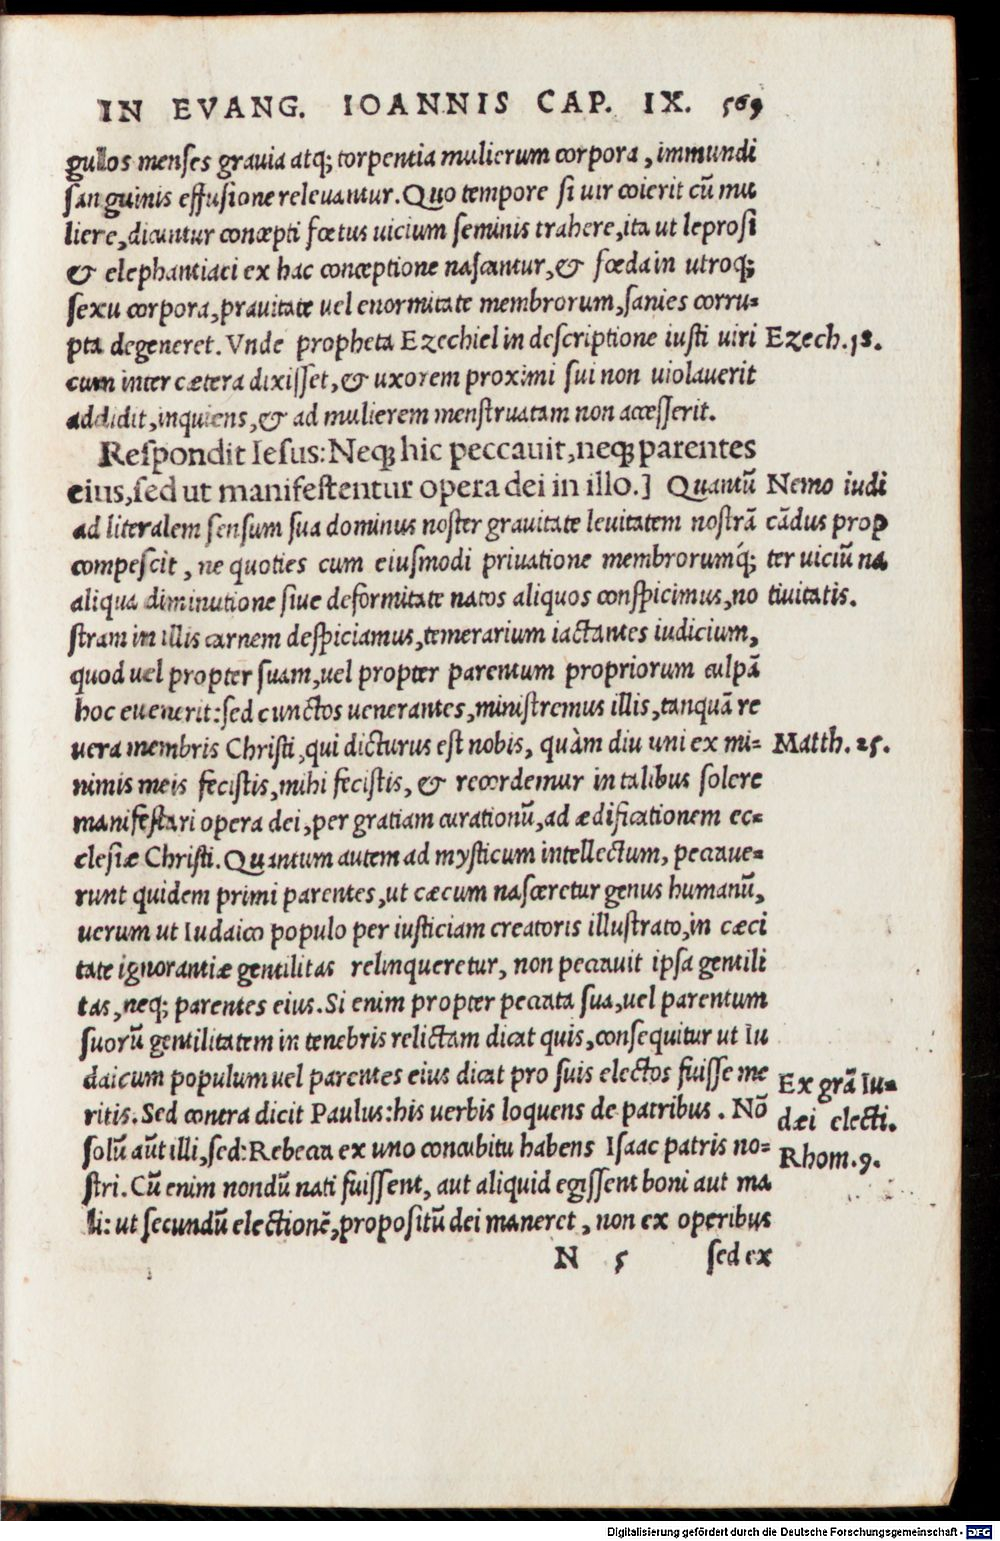 IN EVANG. IOANNIS CAP. IX. 569
gulos menses grauia atq; torpentia mulierum corpora, immundi
sanguinis effusione releuantur. Quo tempore si uir coierit cũ mu
liere, dicuntur concepti fœtus uicium seminis trahere, ita ut leprosi
& elephantiaci ex hac conceptione nascantur, & fœda in utroq;
sexu corpora, prauitate uel enormitate membrorum, sanies corru-
pta degeneret. Vnde propheta Ezechiel in descriptione iusti uiri
Ezech. 18.
cum inter cætera dixisset, & uxorem proximi sui non uiolauerit
addidit, inquiens, & ad mulierem menstruatam non accesserit.
Respondit Iesus: Neq; hic peccauit, neq; parentes
eius, sed ut manifestentur opera dei in illo.] Quantũ
ad literalem sensum sua dominus noster grauitate leuitatem nostrã
compescit, ne quoties cum eiusmodi priuatione membrorumq́;
aliqua diminutione siue deformitate natos aliquos conspicimus, no
Nemo iudi
cãdus prop
ter uiciũ na
tiuitatis.
stram in illis carnem despiciamus, temerarium iactantes iudicium,
quod uel propter suam, uel propter parentum propriorum culpã
hoc euenerit: sed cunctos uenerantes, ministremus illis, tanquã re
uera membris Christi, qui dicturus est nobis, quàm diu uni ex mi-
Matth. 25.
nimis meis fecistis, mihi fecistis, & recordemur in talibus solere
manifestari opera dei, per gratiam curationũ, ad ædificationem ec-
clesiæ Christi. Quantum autem ad mysticum intellectum, peccaue-
runt quidem primi parentes, ut cæcum nasceretur genus humanũ,
uerum ut Iudaico populo per iusticiam creatoris illustrato, in cæci
tate ignorantiæ gentilitas relinqueretur, non peccauit ipsa gentili
tas, neq; parentes eius. Si enim propter peccata sua, uel parentum
suorũ gentilitatem in tenebris relictam dicat quis, consequitur ut Iu
daicum populum uel parentes eius dicat pro suis electos fuisse me
ritis. Sed contra dicit Paulus: his uerbis loquens de patribus. Nõ
Ex grã Iu-
dæi electi.
solũ aũt illi, sed: Rebecca ex uno concubitu habens Isaac patris no-
Rhom. 9.
stri. Cũ enim nondũ nati fuissent, aut aliquid egissent boni aut ma
li: ut secundũ electionẽ, propositũ dei maneret, non ex operibus
N 5 sed ex
Digitalisierung gefördert durch die Deutsche Forschungsgemeinschaft - DFG